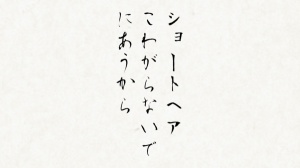 ショートヘア
こわがらないで
にあうから